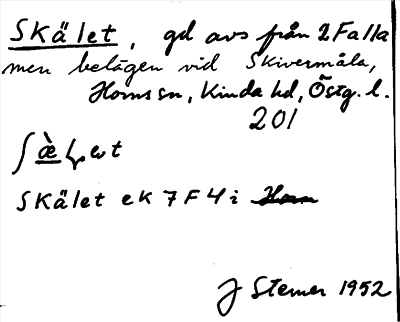 Skälet, gd avs från 2 Falla
men belägen vid Skivermåla,
Horns sn, Kinda hd, Östg. l.
201
Skälet ek 7 F 4 i Horn
J Sterner 1952